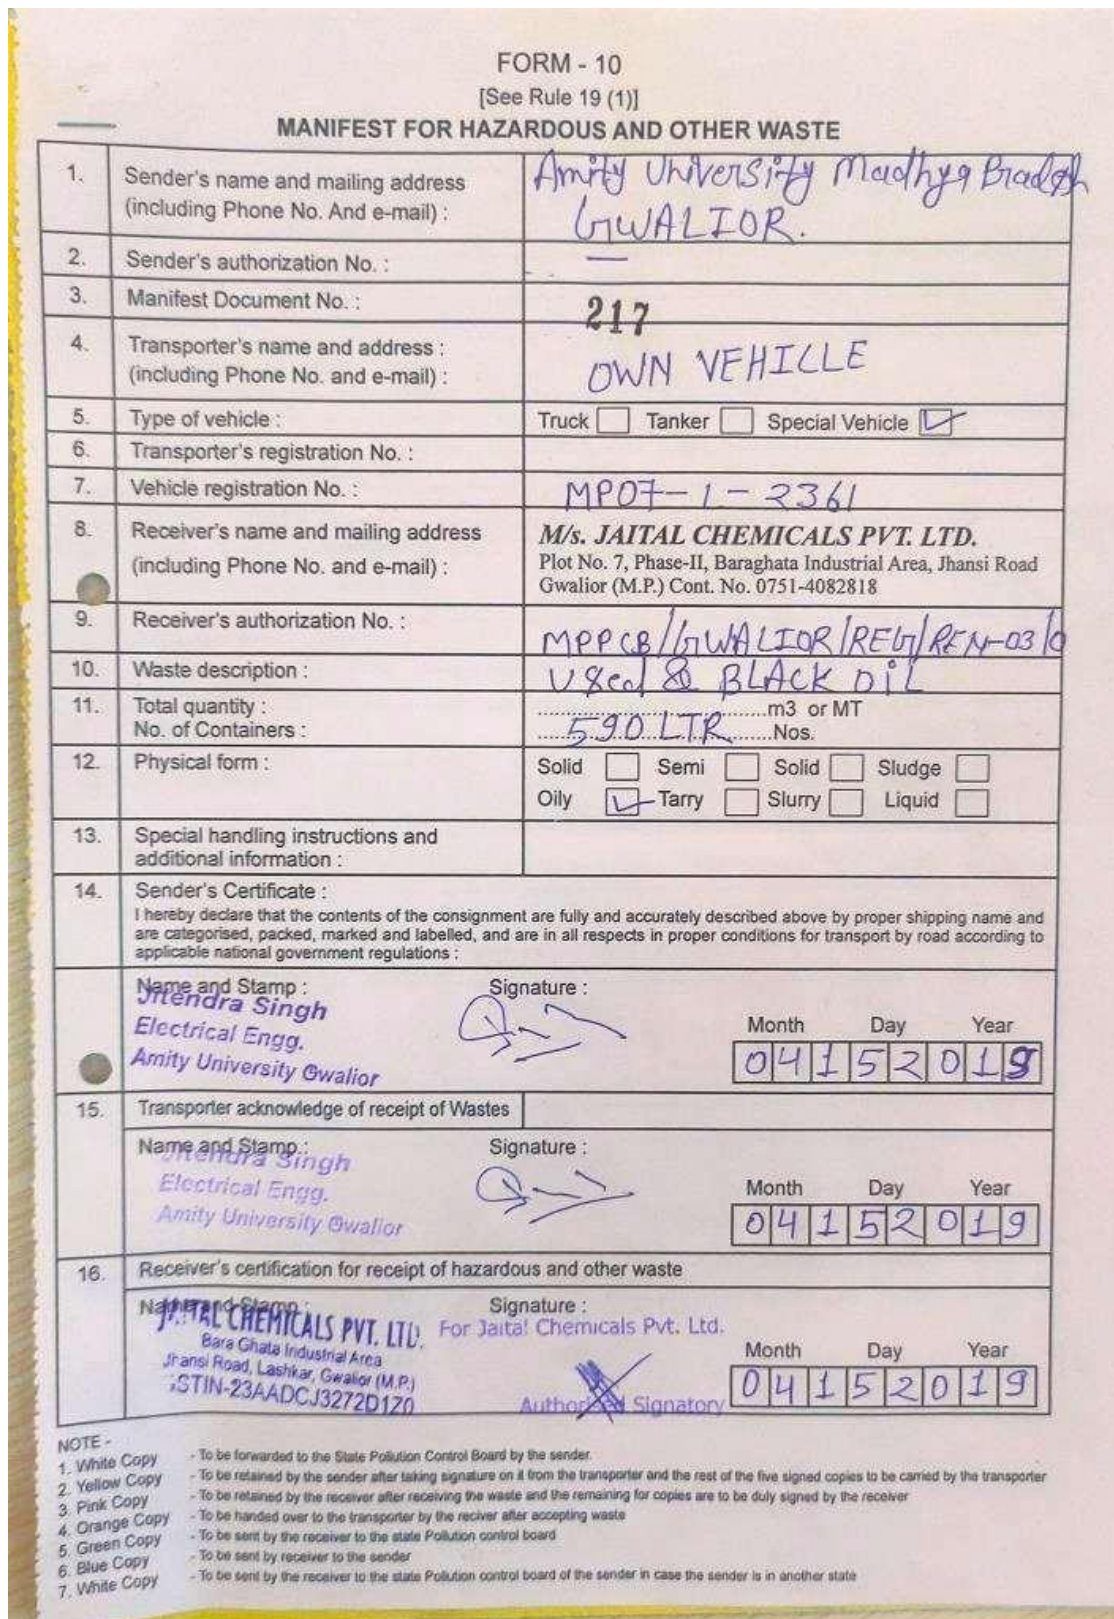 FORM - 10
[See Rule 19 (1)]
MANIFEST FOR HAZARDOUS AND OTHER WASTE
1. Sender's name and mailing address Amity University Madhya Pradesh
(including Phone No. And e-mail) : GWALIOR.
2. Sender's authorization No. : —
3. Manifest Document No. : 217
4. Transporter's name and address : OWN VEHILLE
(including Phone No. and e-mail) :
5. Type of vehicle : Truck Tanker Special Vehicle
6. Transporter's registration No. :
7. Vehicle registration No. : MP07-1-2361
8. Receiver's name and mailing address M/s. JAITAL CHEMICALS PVT. LTD.
(including Phone No. and e-mail) : Plot No. 7, Phase-II, Baraghata Industrial Area, Jhansi Road
Gwalior (M.P.) Cont. No. 0751-4082818
9. Receiver's authorization No. : MPPCB/GWALIOR/REG/REN-03/0
10. Waste description : Used & BLACK OIL
11. Total quantity : ....................m3 or MT
No. of Containers : 590 LTR Nos.
12. Physical form : Solid Semi Solid Sludge
Oily Tarry Slurry Liquid
13. Special handling instructions and
additional information :
14. Sender's Certificate :
I hereby declare that the contents of the consignment are fully and accurately described above by proper shipping name and
are categorised, packed, marked and labelled, and are in all respects in proper conditions for transport by road according to
applicable national government regulations :
Name and Stamp : Signature :
Jitendra Singh
Electrical Engg.
Amity University Gwalior
Month Day Year
04152019
15. Transporter acknowledge of receipt of Wastes
Name and Stamp : Signature :
Jitendra Singh
Electrical Engg.
Amity University Gwalior
Month Day Year
04152019
16. Receiver's certification for receipt of hazardous and other waste
Name and Stamp : Signature :
JAITAL CHEMICALS PVT. LTD. For Jaital Chemicals Pvt. Ltd.
Bara Ghata Industrial Area
Jhansi Road, Lashkar, Gwalior (M.P.)
GSTIN-23AADCJ3272D1Z0
Authorised Signatory
Month Day Year
04152019
NOTE -
1. White Copy - To be forwarded to the State Pollution Control Board by the sender.
2. Yellow Copy - To be retained by the sender after taking signature on it from the transporter and the rest of the five signed copies to be carried by the transporter
3. Pink Copy - To be retained by the receiver after receiving the waste and the remaining for copies are to be duly signed by the receiver
4. Orange Copy - To be handed over to the transporter by the reciver after accepting waste
5. Green Copy - To be sent by the receiver to the state Pollution control board
6. Blue Copy - To be sent by receiver to the sender
7. White Copy - To be sent by the receiver to the state Pollution control board of the sender in case the sender is in another state